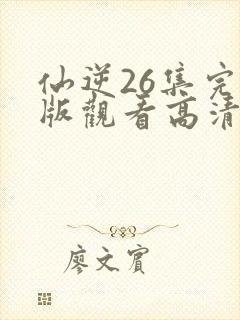 仙逆26集完
版觀看高清
廖文賓